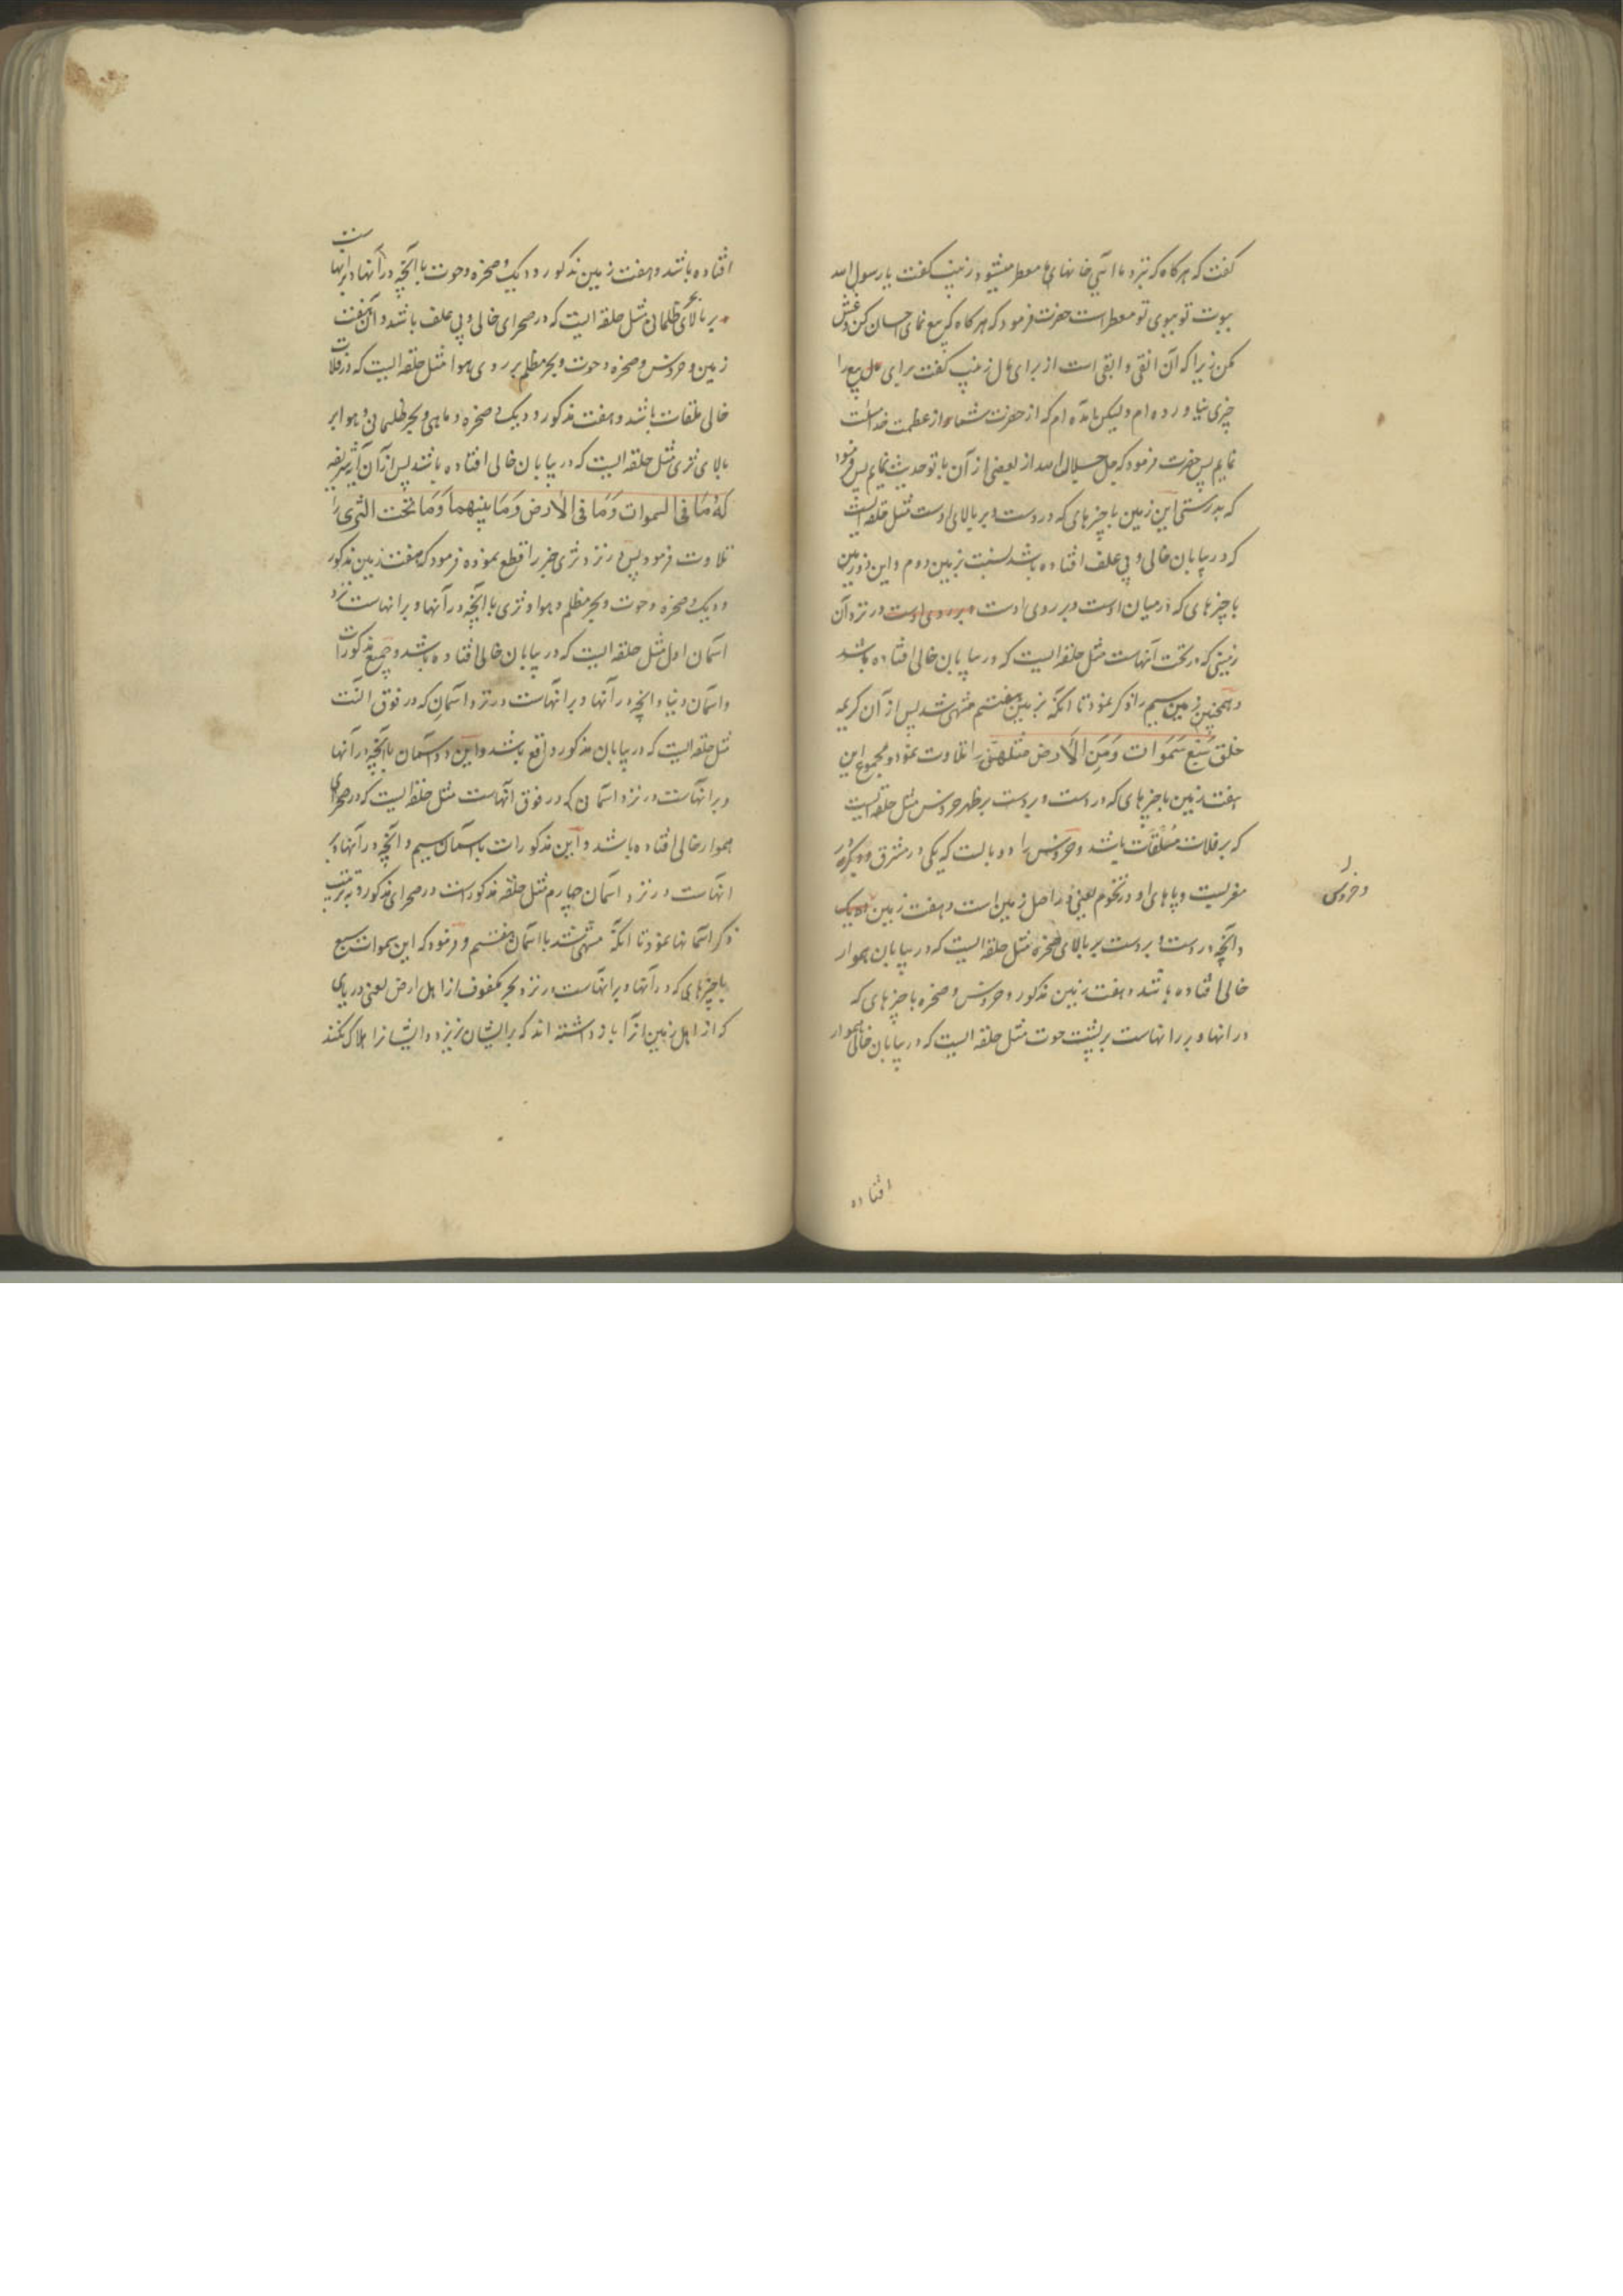 گفت که هرکاه که نزد ما آئی خانهای ما معطر میشود زینب گفت یا رسول الله
بیوت تو ببوی تو معطر است حضرت فرمود که هرکاه که بیع نمای احسان کن و غش
مکن زیرا که آن اتقی و ابقی است از برای مال زینب گفت برای بیع را
چیزی نیاورده ام ولیکن آمده ام که از حضرت شما سوال از عظمت خداست
نمایم پس حضرت فرمود که جل جلال الله از بعضی از آن با تو حدیث نمایم پس فرمود
که بدرستی این زمین با چیزهای که در وست و بر بالای اوست مثل حلقه ایست
که در بیابان خالی و بی علف افتاده باشد نسبت بزمین دوم و این دو زمین
با چیزهای که در میان اوست و بر روی اوست و بر روی اوست در نزد آن
زمینی که در تحت آنهاست مثل حلقه ایست که در بیابان خالی افتاده باشد
و همچنین زمین سیم را ذکر نمود تا آنکه بزمین هفتم منتهی شد پس از آن کریمه
خلق سَبْع سَمَوَات وَمِنَ الْأَرض مثلهنّ را تلاوت نمود و مجموع این
هفت زمین با چیزهای که در وست و بروست بر ظهر خروس مثل حلقه ایست
که بر فلات مُلْقَات باشد و خروس را دو بالست که یکی در مشرق و دیگری در
مغربست و پاهای او در تخوم یعنی در اصل زمین است و هفت زمین
و خروس
و آنچه در وست و بروست بر بالای صخره مثل حلقه ایست که در بیابان هموار
خالی افتاده باشد و هفت زمین مذکور و خروس و صخره با چیزهای که
در آنها و بر آنهاست بر پشت حوت مثل حلقه ایست که در بیابان خالی هموار
افتاده
افتاده باشد و هفت زمین مذکور و دیک و صخره و حوت با آنچه در آنها و بر آنهاست
بر بالای بحر ظلمانی مثل حلقه ایست که در صحرای خالی و بی علف باشد و آن هفت
زمین و خروس و صخره و حوت و بحر مظلم بر روی هوا مثل حلقه ایست که در فلات
خالی ملقات باشد و هفت مذکور و دیک و صخره و ماهی و بحر ظلمانی و هوا بر
بالای ثری مثل حلقه ایست که در بیابان خالی افتاده باشد پس از آن آیه شریفه
لَهُ مَا فی السموات وَمَا فی الأرض وَمَا بینهما وَمَا تحت الثری را
تلاوت فرمود پس در نزد ثری خبر را قطع نموده فرمود که هفت زمین مذکور
و دیک و صخره و حوت و بحر مظلم و هوا و ثری با آنچه در آنها و بر آنهاست نزد
آسمان اول مثل حلقه ایست که در بیابان خالی افتاده باشد و جمیع مذکورات
و آسمان دنیا و آنچه در آنها و بر آنهاست در نزد آسمان که در فوق آنست
مثل حلقه ایست که در بیابان مذکور واقع باشد و این دو آسمان با آنچه در آنها
و بر آنهاست در نزد آسمان که در فوق آنهاست مثل حلقه ایست که در صحرای
هموار خالی افتاده باشد و این مذکورات با آسمان سیم و آنچه در آنها و بر
آنهاست در نزد آسمان چهارم مثل حلقه مذکور است در صحرای مذکور و بترتیب
ذکر آسمانها نمود تا آنکه منتهی شد با آسمان هفتم و فرمود که این سموات سبع
با چیزهای که در آنها و بر آنهاست در نزد بحر مکفوف از اهل ارض یعنی دریای
که از اهل زمین آنرا باز داشته اند که بر ایشان نریزد و ایشانرا هلاک نکند